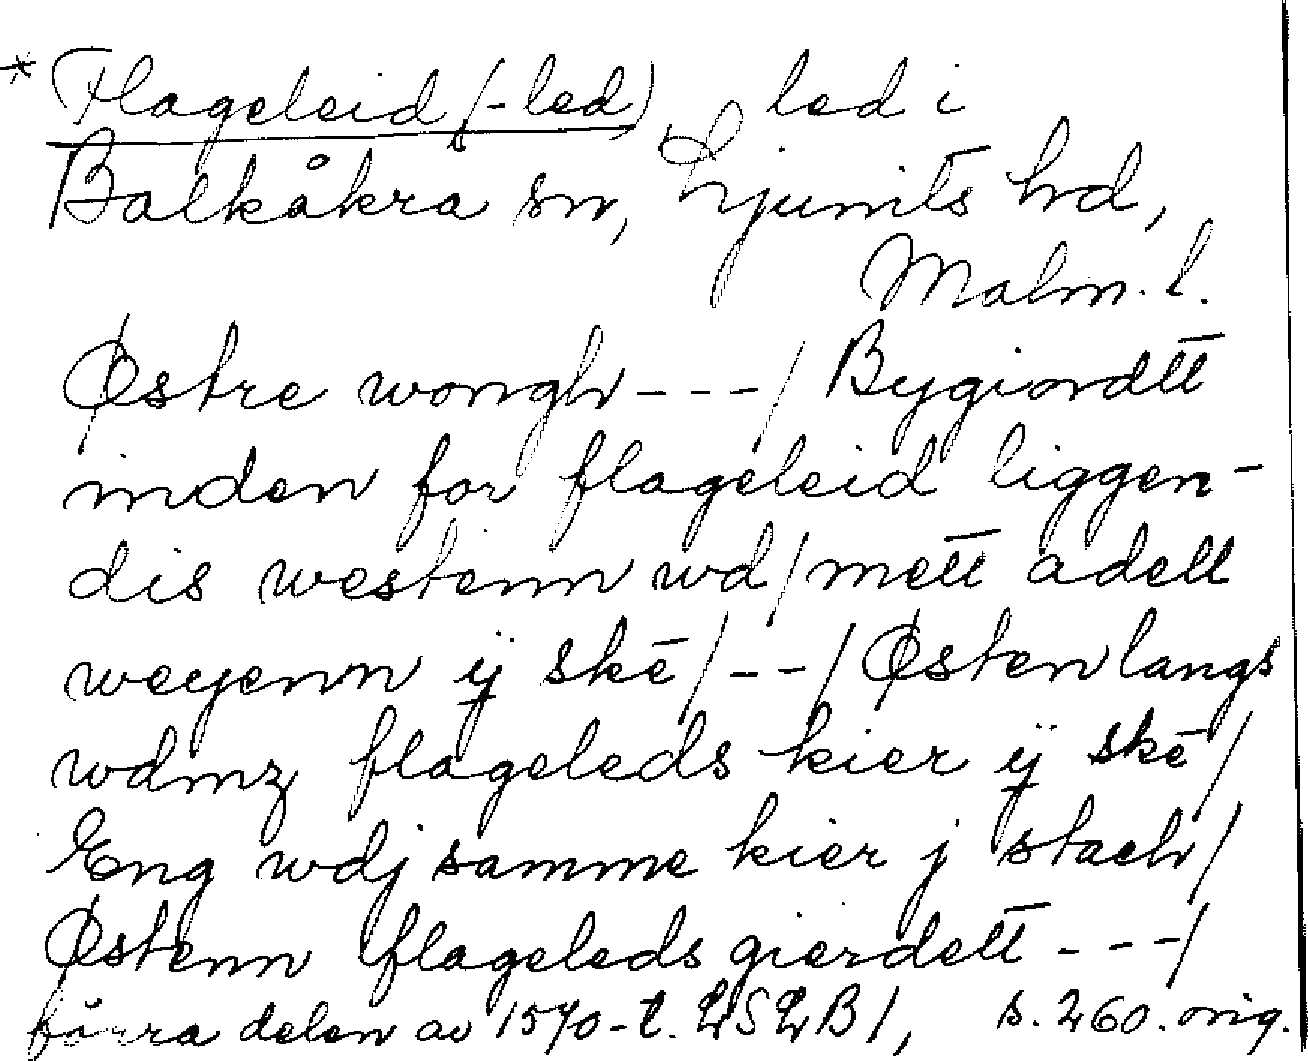 * Flageleid (-led) led i
Balkåkra sn, Ljunits hd,
Malm. l.
Østre wongh - - - / Bygiordtt
inden for flageleid liggen-
dis westenn wd / mett adell
weyenn ÿ skē / - - / Østen langs
wdmz flageleds kier ÿ skē /
Eng wdj samme kier j stach /
Østenn flageleds gierdett - - - /
förra delen av 1570-t. LSLB 1, s. 260. orig.